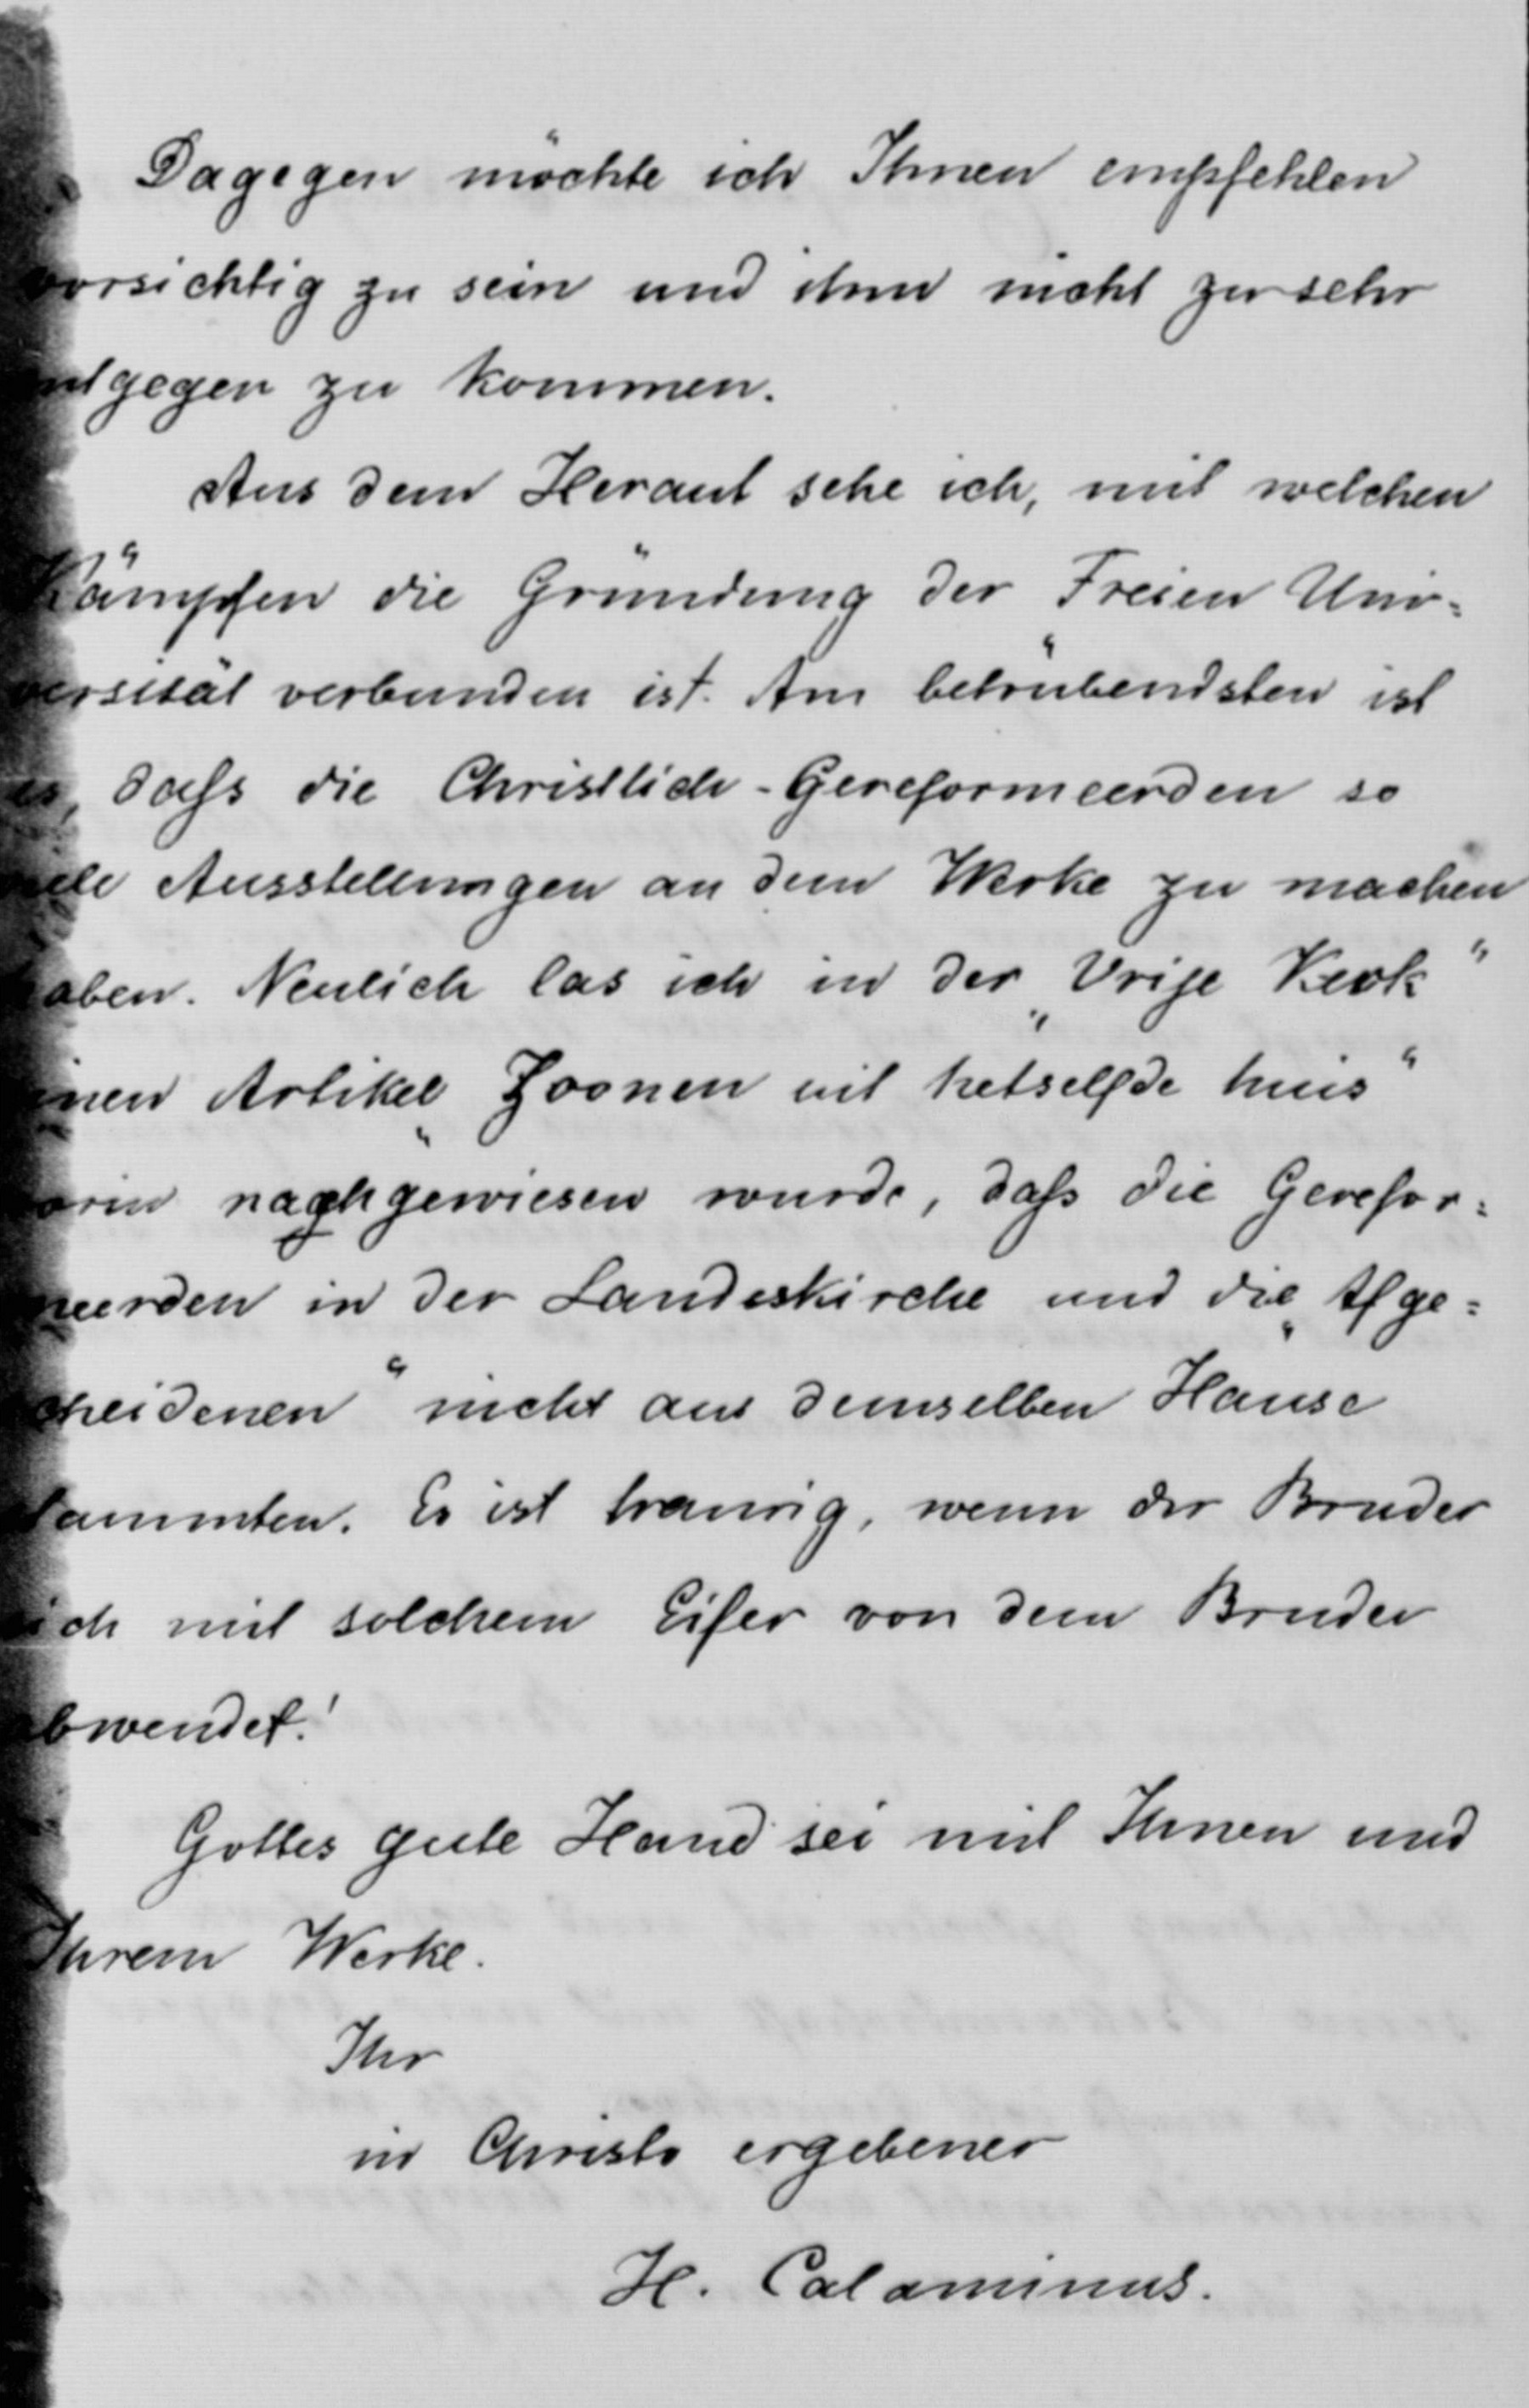 Dagegen möchte ich Ihnen empfehlen
vorsichtig zu sein und ihm nicht zu sehr
entgegen zu kommen.
Aus dem Heraut sehe ich, mit welchen
Kämpfen die Gründung der Freien Uni-
versität verbunden ist. Am betrübendsten ist
es, daſs die Christlich-Gereformeerden so
viele Ausstellungen an dem Werke zu machen
haben. Neulich las ich in der „Vrije Kerk“
einen Artikel „Zoonen uit hetselfde huis“
worin nachgewiesen wurde, daſs die Gerefor-
meerden in der Landeskirche und die „Afge-
scheidenen“ nicht aus demselben Hause
stammten. Es ist traurig, wenn der Bruder
sich mit solchem Eifer von dem Bruder
abwendet!
Gottes gute Hand sei mit Ihnen und
Ihrem Werke.
Ihr
in Christo ergebener
H. Calaminus.